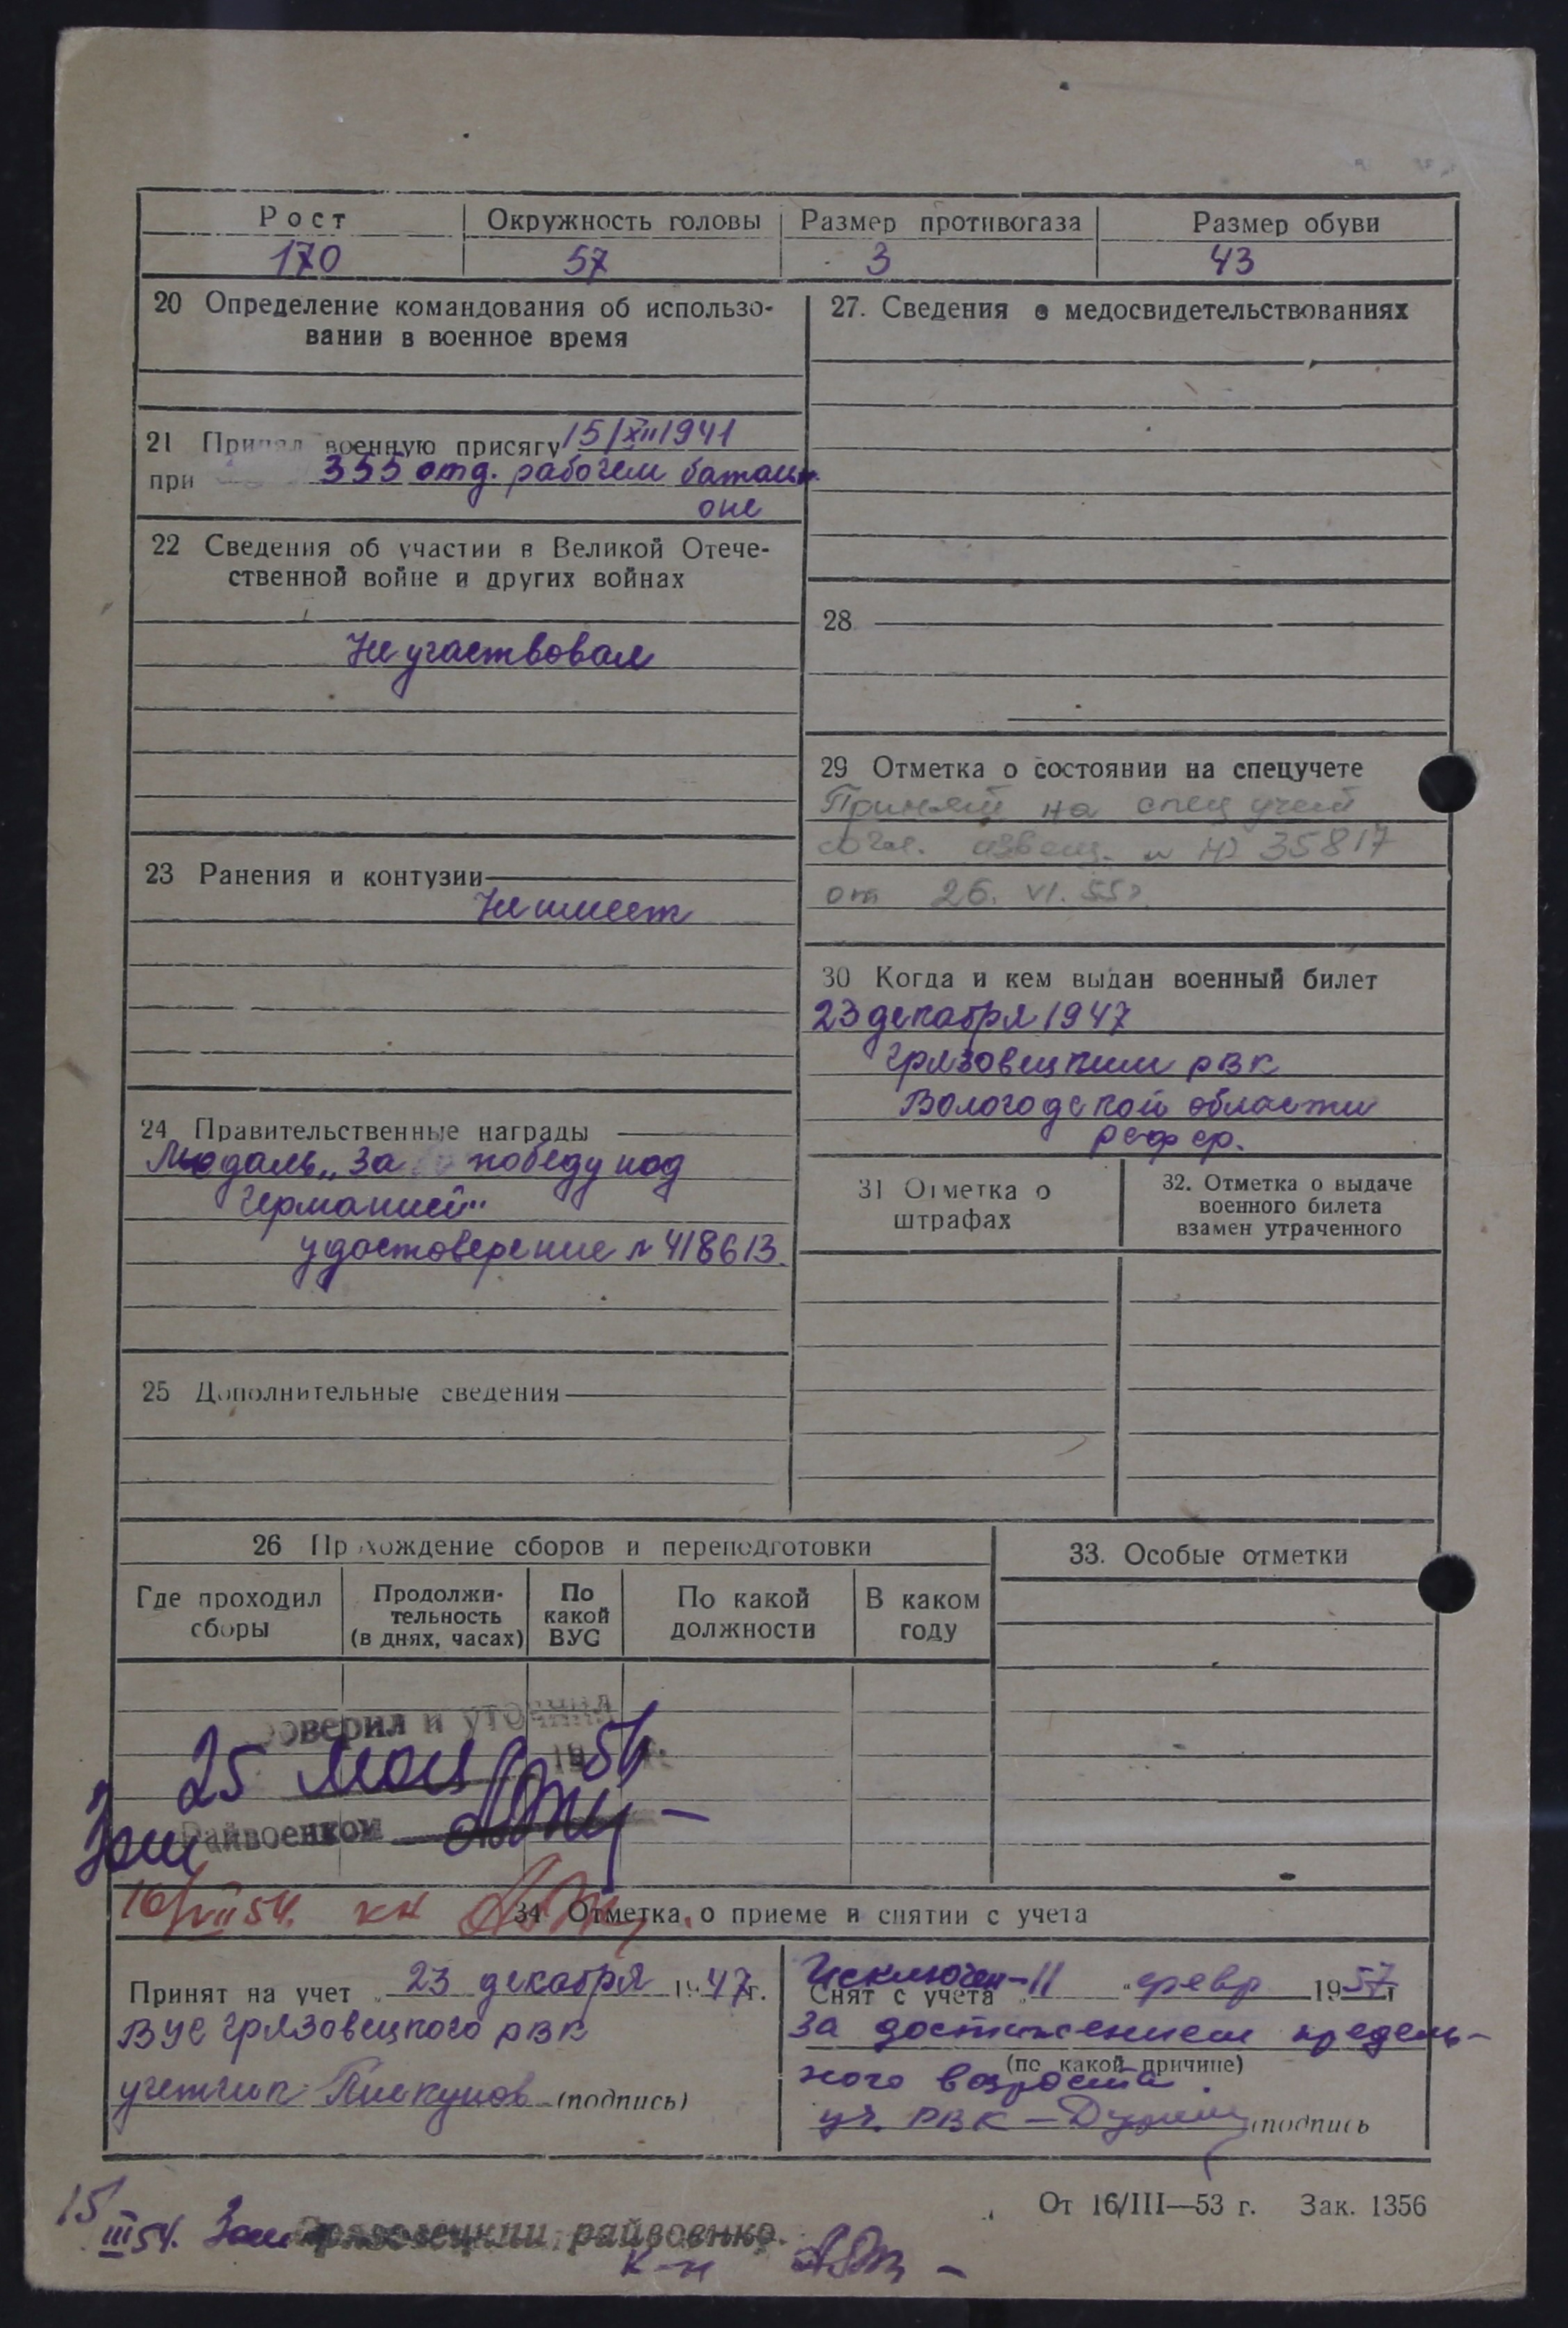 Рост Окружность головы Размер противогаза Размер обуви
170 57 3 43
20 Определение командования об использо-
вании в военное время
21 Принял военную присягу 15/XII 1941
при 355 отд. рабочем батальо-
оне
22 Сведения об участии в Великой Отече-
ственной войне и других войнах
Не участвовал
23 Ранения и контузии
Не имеет
24 Правительственные награды
Медаль „За победу над
Германией"
удостоверение № 418613.
25 Дополнительные сведения
27. Сведения о медосвидетельствованиях
28
29 Отметка о состоянии на спецучете
Принят на спец учет
согл. извещ. № 35817
от 26. VI. 55г.
30 Когда и кем выдан военный билет
23 декабря 1947
Грязовецким РВК
Вологодской области
РСФСР.
31 Отметка о
штрафах
32. Отметка о выдаче
военного билета
взамен утраченного
26 Прохождение сборов и переподготовки
Где проходил
сборы
Продолжи-
тельность
(в днях, часах)
По
какой
ВУС
По какой
должности
В каком
году
33. Особые отметки
Проверил и уточнил
25 мая 1956 г.
Зам Райвоенком
16/VII 54. кн
34 Отметка о приеме и снятии с учета
Принят на учет „23 декабря 1947г.
ВУС Грязовецкого РВК
учетчик Пискунов (подпись)
Исключен
Снят с учета „11 " февр 1957г
за достижением предель-
(по какой причине)
ного возраста.
уч. РВК — (подпись
От 16/III—53 г. Зак. 1356
15/III 54. Зам Грязовецкий райвоенко.
к-н